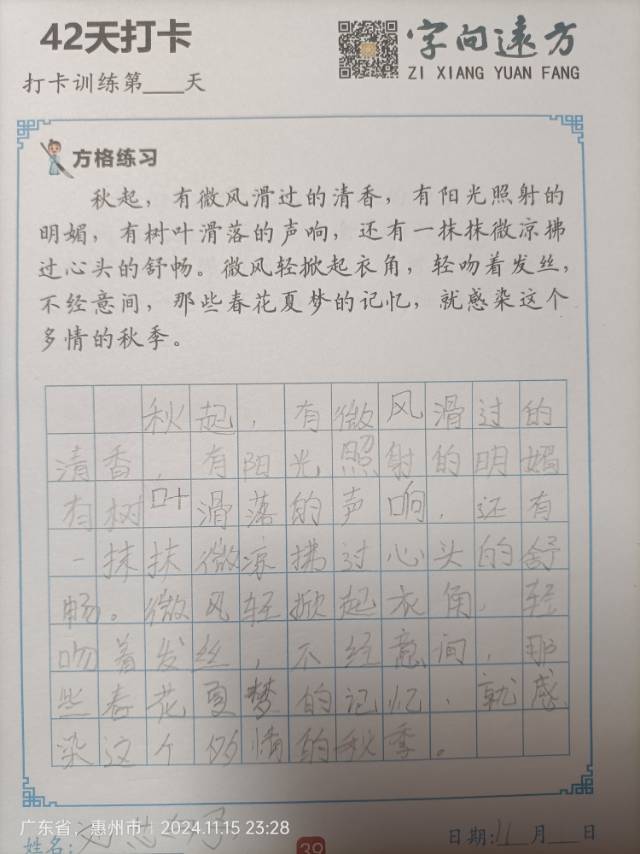 42天打卡
字向远方
ZI XIANG YUAN FANG
打卡训练第___天
方格练习
秋起，有微风滑过的清香，有阳光照射的
明媚，有树叶滑落的声响，还有一抹抹微凉拂
过心头的舒畅。微风轻掀起衣角，轻吻着发丝，
不经意间，那些春花夏梦的记忆，就感染这个
多情的秋季。
秋起，有微风滑过的
清香，有阳光照射的明媚
有树叶滑落的声响，还有
一抹抹微凉拂过心头的舒
畅。微风轻掀起衣角，轻
吻着发丝，不经意间，那
些春花夏梦的记忆，就感
染这个多情的秋季。
广东省，惠州市 2024.11.15 23:28
姓名：
日期：11月 日
39